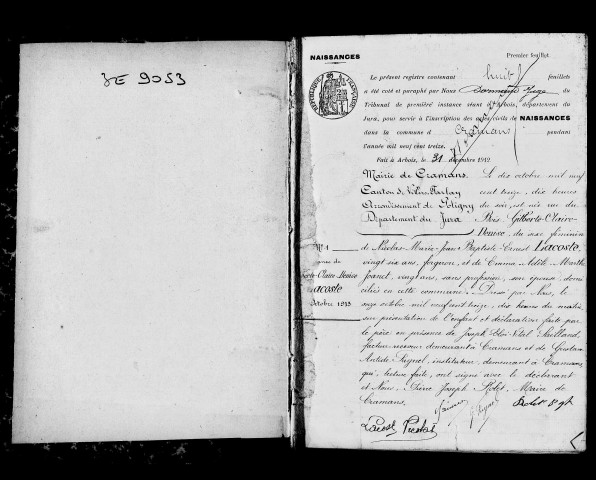 3E 9053
NAISSANCES
Premier feuillet.
RÉPUBLIQUE FRANÇAISE
Le présent registre contenant huit feuillets
a été coté et paraphé par Nous Juge du
Tribunal de première instance séant à Arbois, département du
Jura, pour servir à l'inscription des actes civils de NAISSANCES
dans la commune d Cramans pendant
l'année mil neuf cent treize.
Fait à Arbois, le 31 décembre 1912
Mairie de Cramans
Canton de Villers-Farlay
Arrondissement de Poligny
Département du Jura
Le dix octobre mil neuf
cent treize, dix heures
du soir, est née rue du
Bois Gilberte-Claire-
Denise, du sexe féminin
N° 1
Claire Denise
Lacoste
octobre 1913
de Nicolas-Marie-Jean-Baptiste-Ernest Lacoste,
vingt six ans, forgeron, et de Emma Adèle Marthe
vingt ans, sans profession, son épouse, domi
ciliés en cette commune. Dressé par Nous, le
onze octobre mil neuf cent treize, dix heures du matin,
sur présentation de l'enfant et déclaration faite par
le père en présence de Joseph Vital
facteur-receveur demeurant à Cramans et de
Antide instituteur, demeurant à Cramans,
qui, lecture faite, ont signé avec le déclarant
et Nous, Pierre Joseph Maire de
Cramans.
Lacoste